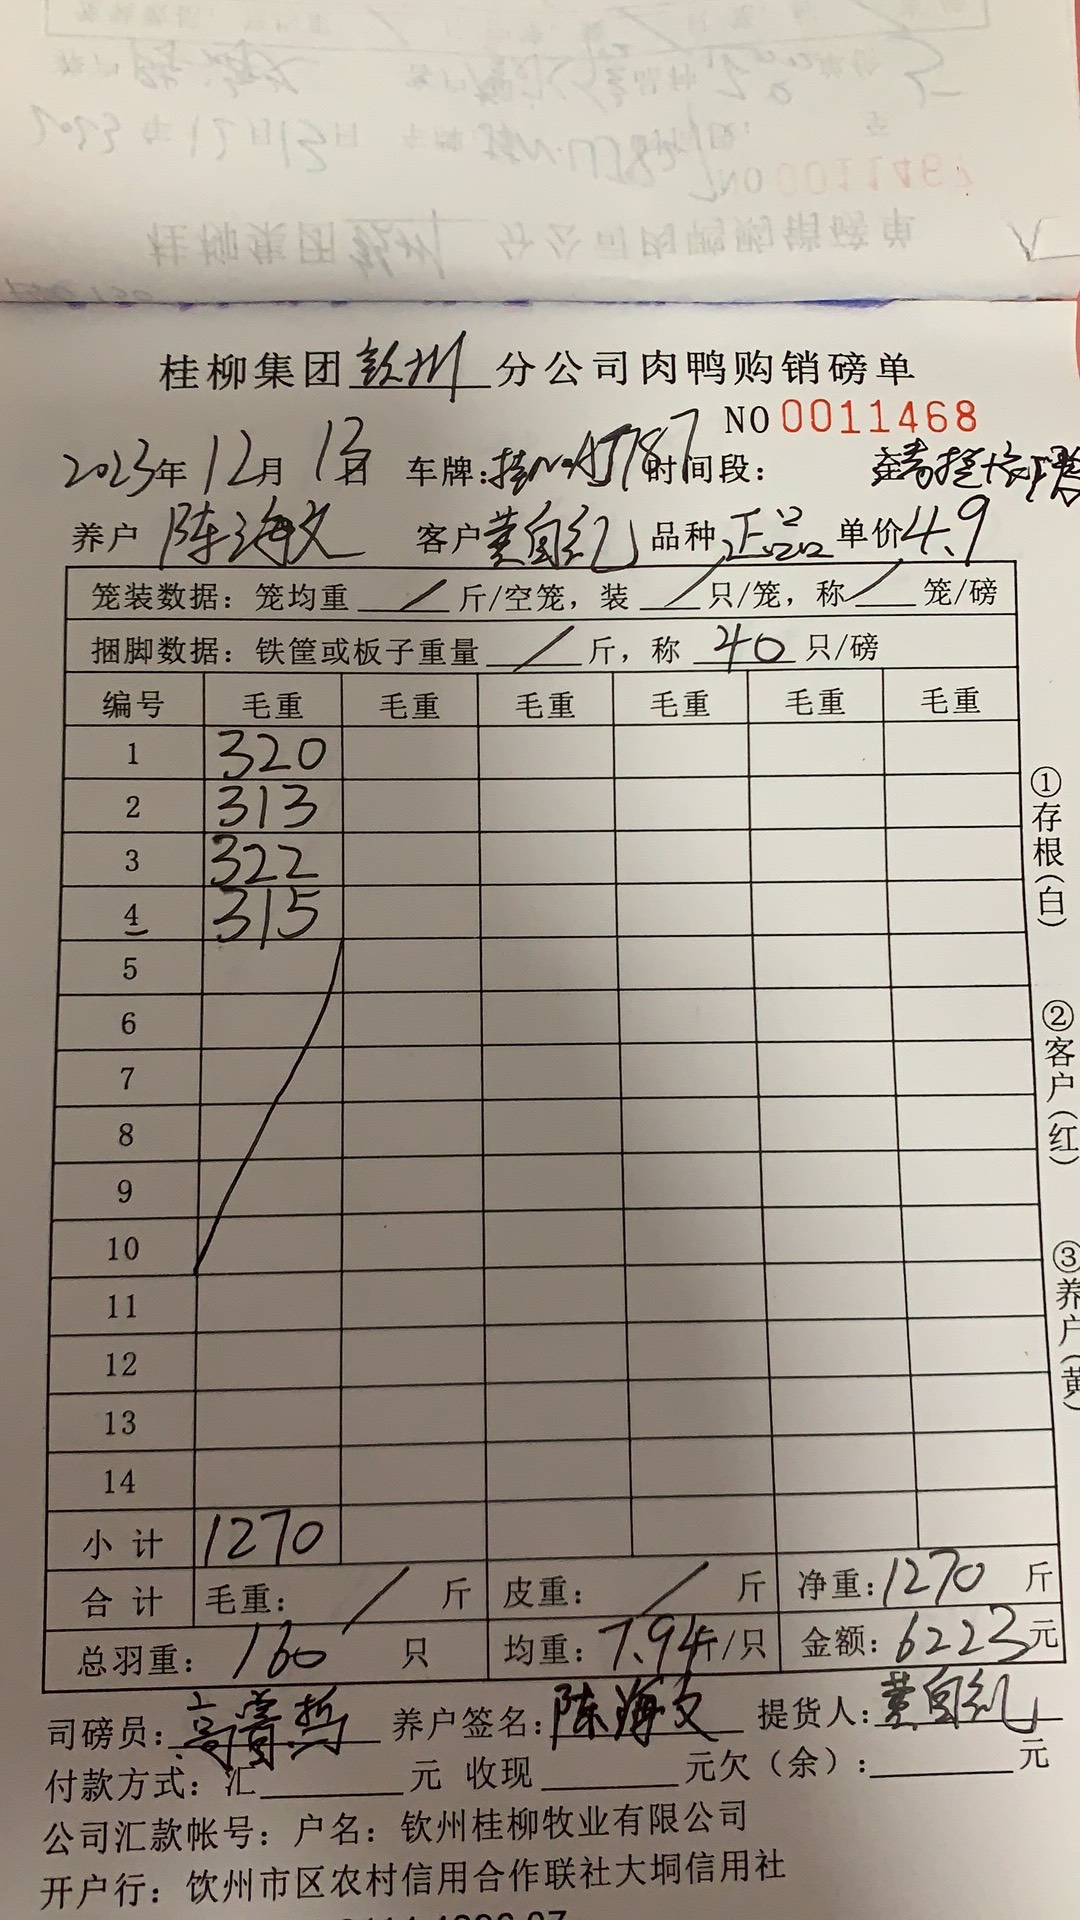 桂柳集团钦州分公司肉鸭购销磅单
NO 0011468
2023年12月13日 车牌: 时间段:
养户 陈海文 客户 黄自礼 品种 正品 单价 4.9
笼装数据: 笼均重 / 斤/空笼, 装 / 只/笼, 称 / 笼/磅
捆脚数据: 铁筐或板子重量 / 斤, 称 40 只/磅
编号 毛重 毛重 毛重 毛重 毛重 毛重
1 320
2 313
3 322
4 315
5
6
7
8
9
10
11
12
13
14
小计 1270
合计 毛重: / 斤 皮重: / 斤 净重: 1270 斤
总羽重: 160 只 均重: 7.94斤/只 金额: 6223元
司磅员: 养户签名: 陈海文 提货人: 黄自礼
付款方式: 汇 元 收现 元欠(余): 元
公司汇款帐号: 户名: 钦州桂柳牧业有限公司
开户行: 钦州市区农村信用合作联社大垌信用社
①存根(白)
②客户(红)
③养户(黄)